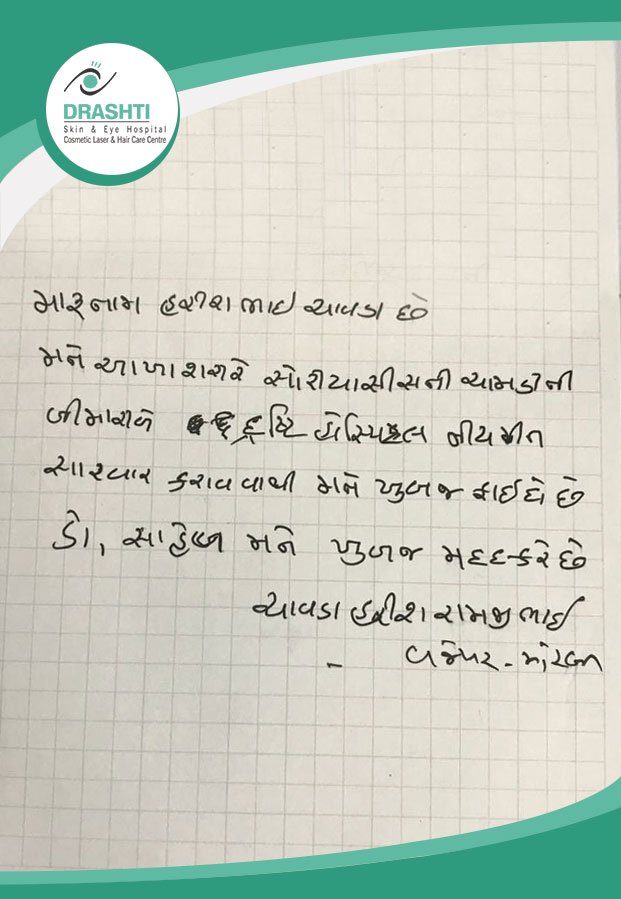 DRASHTI
Skin & Eye Hospital
Cosmetic Laser & Hair Care Centre
મારૂ નામ હરીશભાઈ ચાવડા છે
મને આખા શરીરે સોરીયાસીસની ચામડીની
બીમારીને દ્રષ્ટિ હોસ્પિટલ નીયમીત
સારવાર કરાવવાથી મને ખુબજ ફાઈદો છે
ડો, સાહેબ મને ખુબજ મદદ કરે છે
ચાવડા હરીશ રામજીભાઈ
- મોરબી